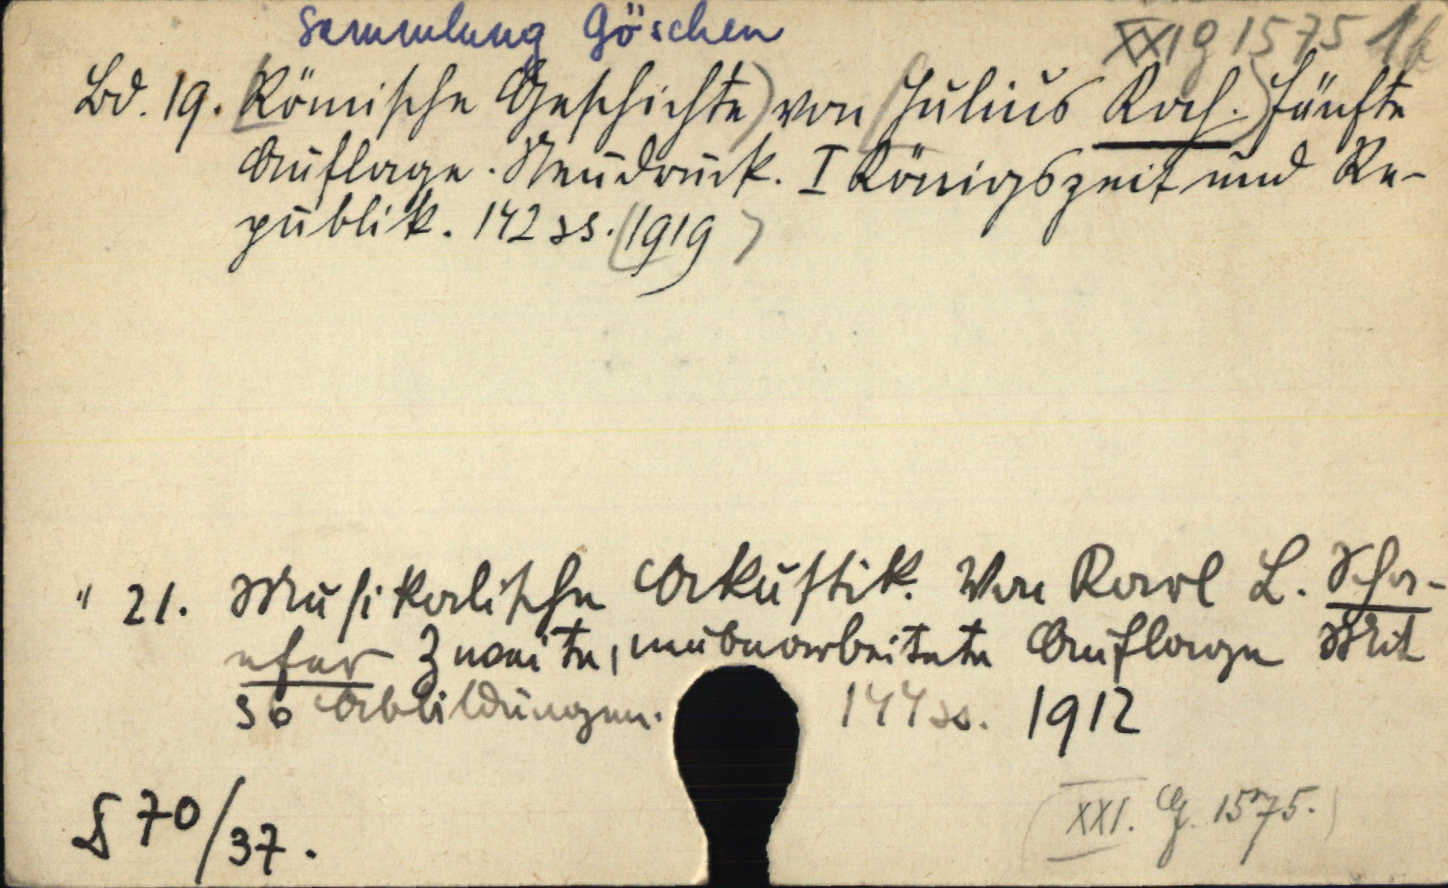 Sammlung Göschen
XXIg 1575
Bd. 19. (Römische Geschichte) von (Julius Koch.) Fünfte
Auflage. Neudruck. I Königszeit und Re-
publik. 142 ss. (1919)
" 21. Musikalische Akustik. Von Karl L. Schä-
efer Zweite, neubearbeitete Auflage Mit
36 Abbildungen. 144 ss. 1912
70/37.
(XXI. G. 1575.)